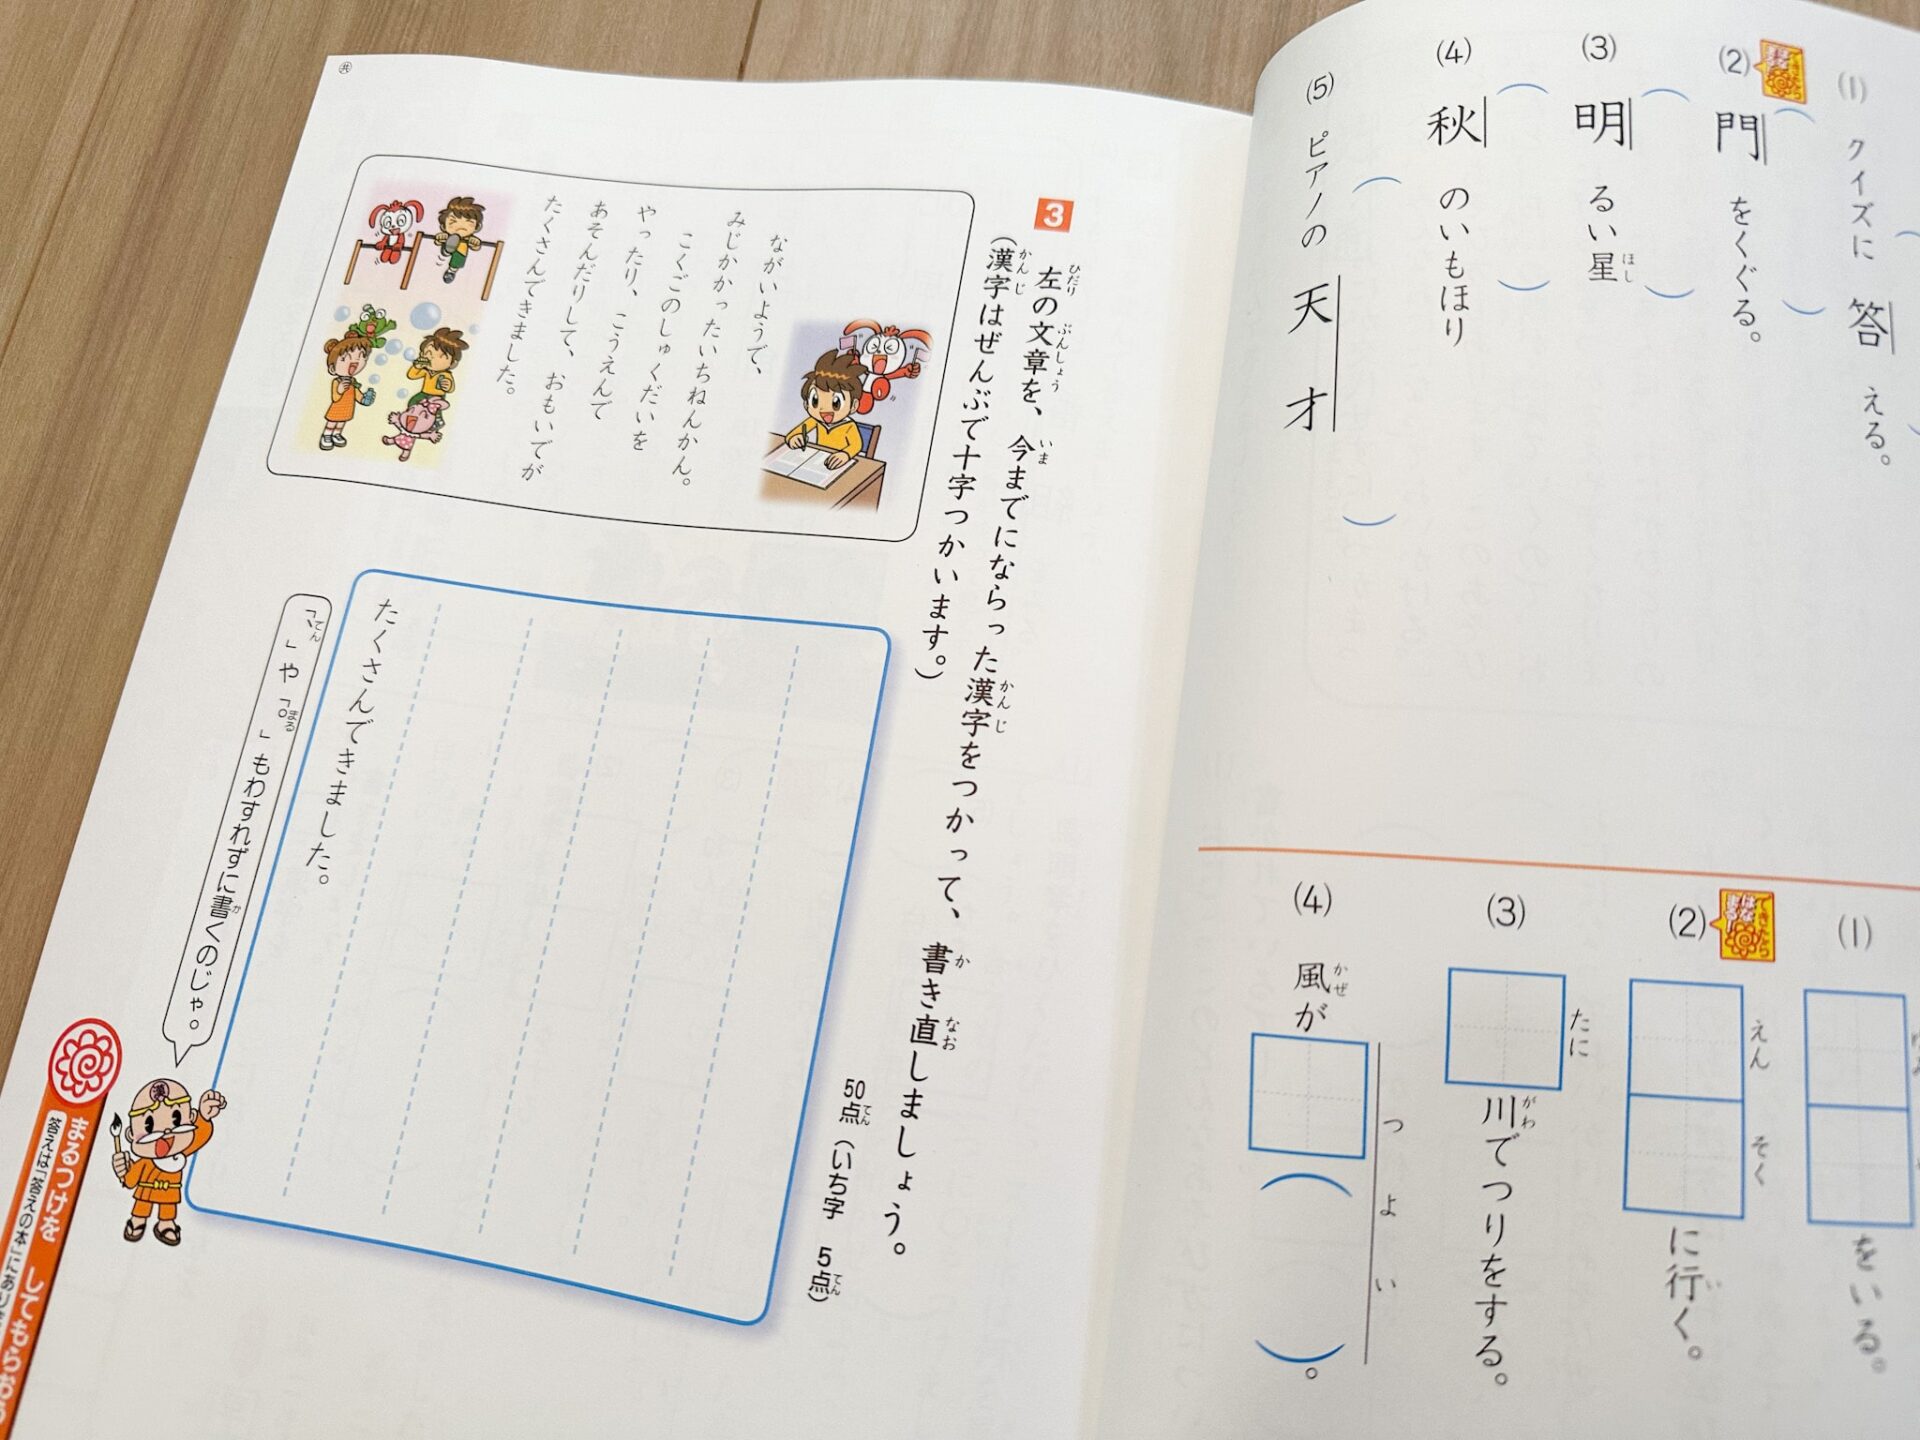 (1) クイズに答える。
(2) 門をくぐる。
(3) 明るい星
ほし
(4) 秋のいもほり
(5) ピアノの天才
(1) をいる。
(2) に行く。
えんそく
い
(3) 川でつりをする。
たに
がわ
(4) 風が
かぜ
つよい
。
できたら
はなまる!
3
左の文章を、今までにならった漢字をつかって、書き直しましょう。
ひだり
ぶんしょう
いま
かんじ
か
なお
(漢字はぜんぶで十字つかいます。)
かんじ
50点(いち字 5点)
てん
てん
ながいようで、
みじかかったいちねんかん。
こくごのしゅくだいを
やったり、こうえんで
あそんだりして、おもいでが
たくさんできました。
たくさんできました。
「、」や「。」もわすれずに書くのじゃ。
てん
まる
か
漢
まるつけを してもらおう
答えは「答えの本」にありま
共